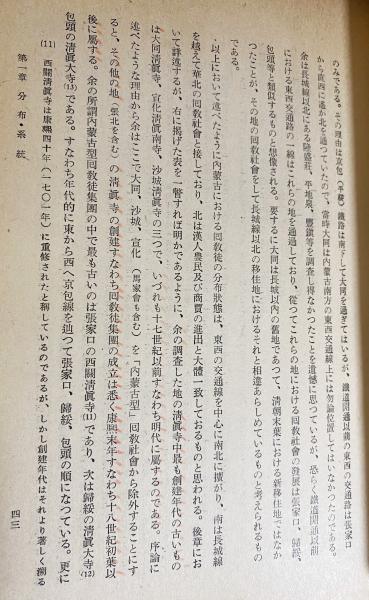 のみである。その理由は京包（平綏）鐵路は南下して大同を過ぎてはいるが、鐵道開通以前の東西の交通路は張家口
から直西に遙か北を通つていたので、當時大同は内蒙古南方の東西交通線上には勿論位置してはいなかつたのである。
余は長城線以北にある隆盛莊、平地泉、豐鎭等を調査し得なかつたことを遺憾に思つているが、恐らく鐵道開通以前
における東西交通路の一線はこれらの地を通過しており、從つてこれらの地における回教社會の發展は張家口、歸綏、
包頭等と類似するものと想像される。要するに大同は長城以内の舊地であつて、清朝末葉における新移住地ではなか
つたことが、その地の回教社會をして長城線以北の移住地におけるそれと相違あらしめているものと考えられるもの
である。
以上において述べたように内蒙古における回教徒の分布狀態は、東西の交通線を中心に南北に擴がり、南は長城線
を越えて華北の回教社會と接しており、北は漢人農民及び商賈の進出と大體一致しておるものと思われる。後章にお
いて詳述するが、右に揭げた表を一瞥すれば明かであるように、余の調査した地の清眞寺中最も創建年代の古いもの
は大同清眞寺、宣化清眞南寺、沙城清眞寺の三つで、いづれも十七世紀以前すなわち明代に屬するのである。序論に
述べたような理由から余はここで大同、沙城、宣化（馬家會も含む）を「内蒙古型」回教社會から除外することにす
ると、その他の地（張北を含む）の清眞寺の創建すなわち回教徒集團の成立は悉く康熙末年すなわち十八世紀初葉以
後に屬する。余の所謂内蒙古型回教徒集團の中で最も古いのは張家口の西關清眞寺(11)であり、次は歸綏の清眞大寺(12)
包頭の清眞大寺(13)である。すなわち年代的に東から西へ京包線を辿つて張家口、歸綏、包頭の順になつている。更に
(11) 西關清眞寺は康熙四十年（一七〇一年）に重修されたと稱しているのであるが、しかし創建年代はそれより著しく溯る
第一章 分布・系統
四三